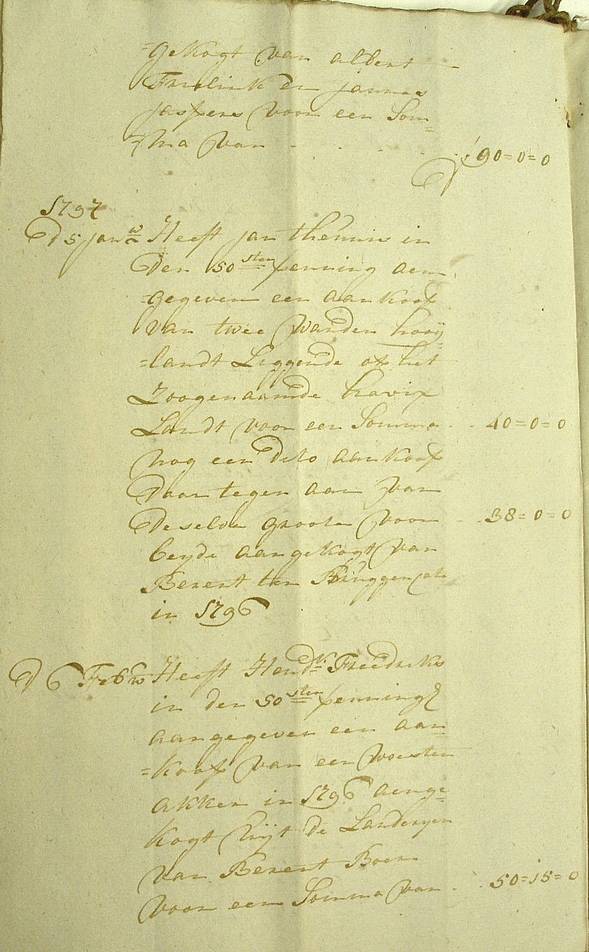 =gekogt van albert
Frielink en jannes
jaspers voor een Som=
ma van - - - 90=0=0
1797
D 5 janw Heeft jan themis in
Den 50sten penning aen
=gegeven een aankoop
van twee Wanden hooij
=landt Liggende op het
Zoogenaamde havix
Landt voor een Somma - 40=0=0
nog een Dito aankoop
Daar tegen aan van
De selve groote voor - 38=0=0
beyde aangekogt van
Berent ten
in 1796
D 6 Febrw Heeft Hendk Freedriks
in den 50sten penning
aangegeven een aan
=koop van een woesten
akker in 1796 aenge=
kogt uijt de Landeryen
van Berent Boer
voor een Somma van - 50=15=0